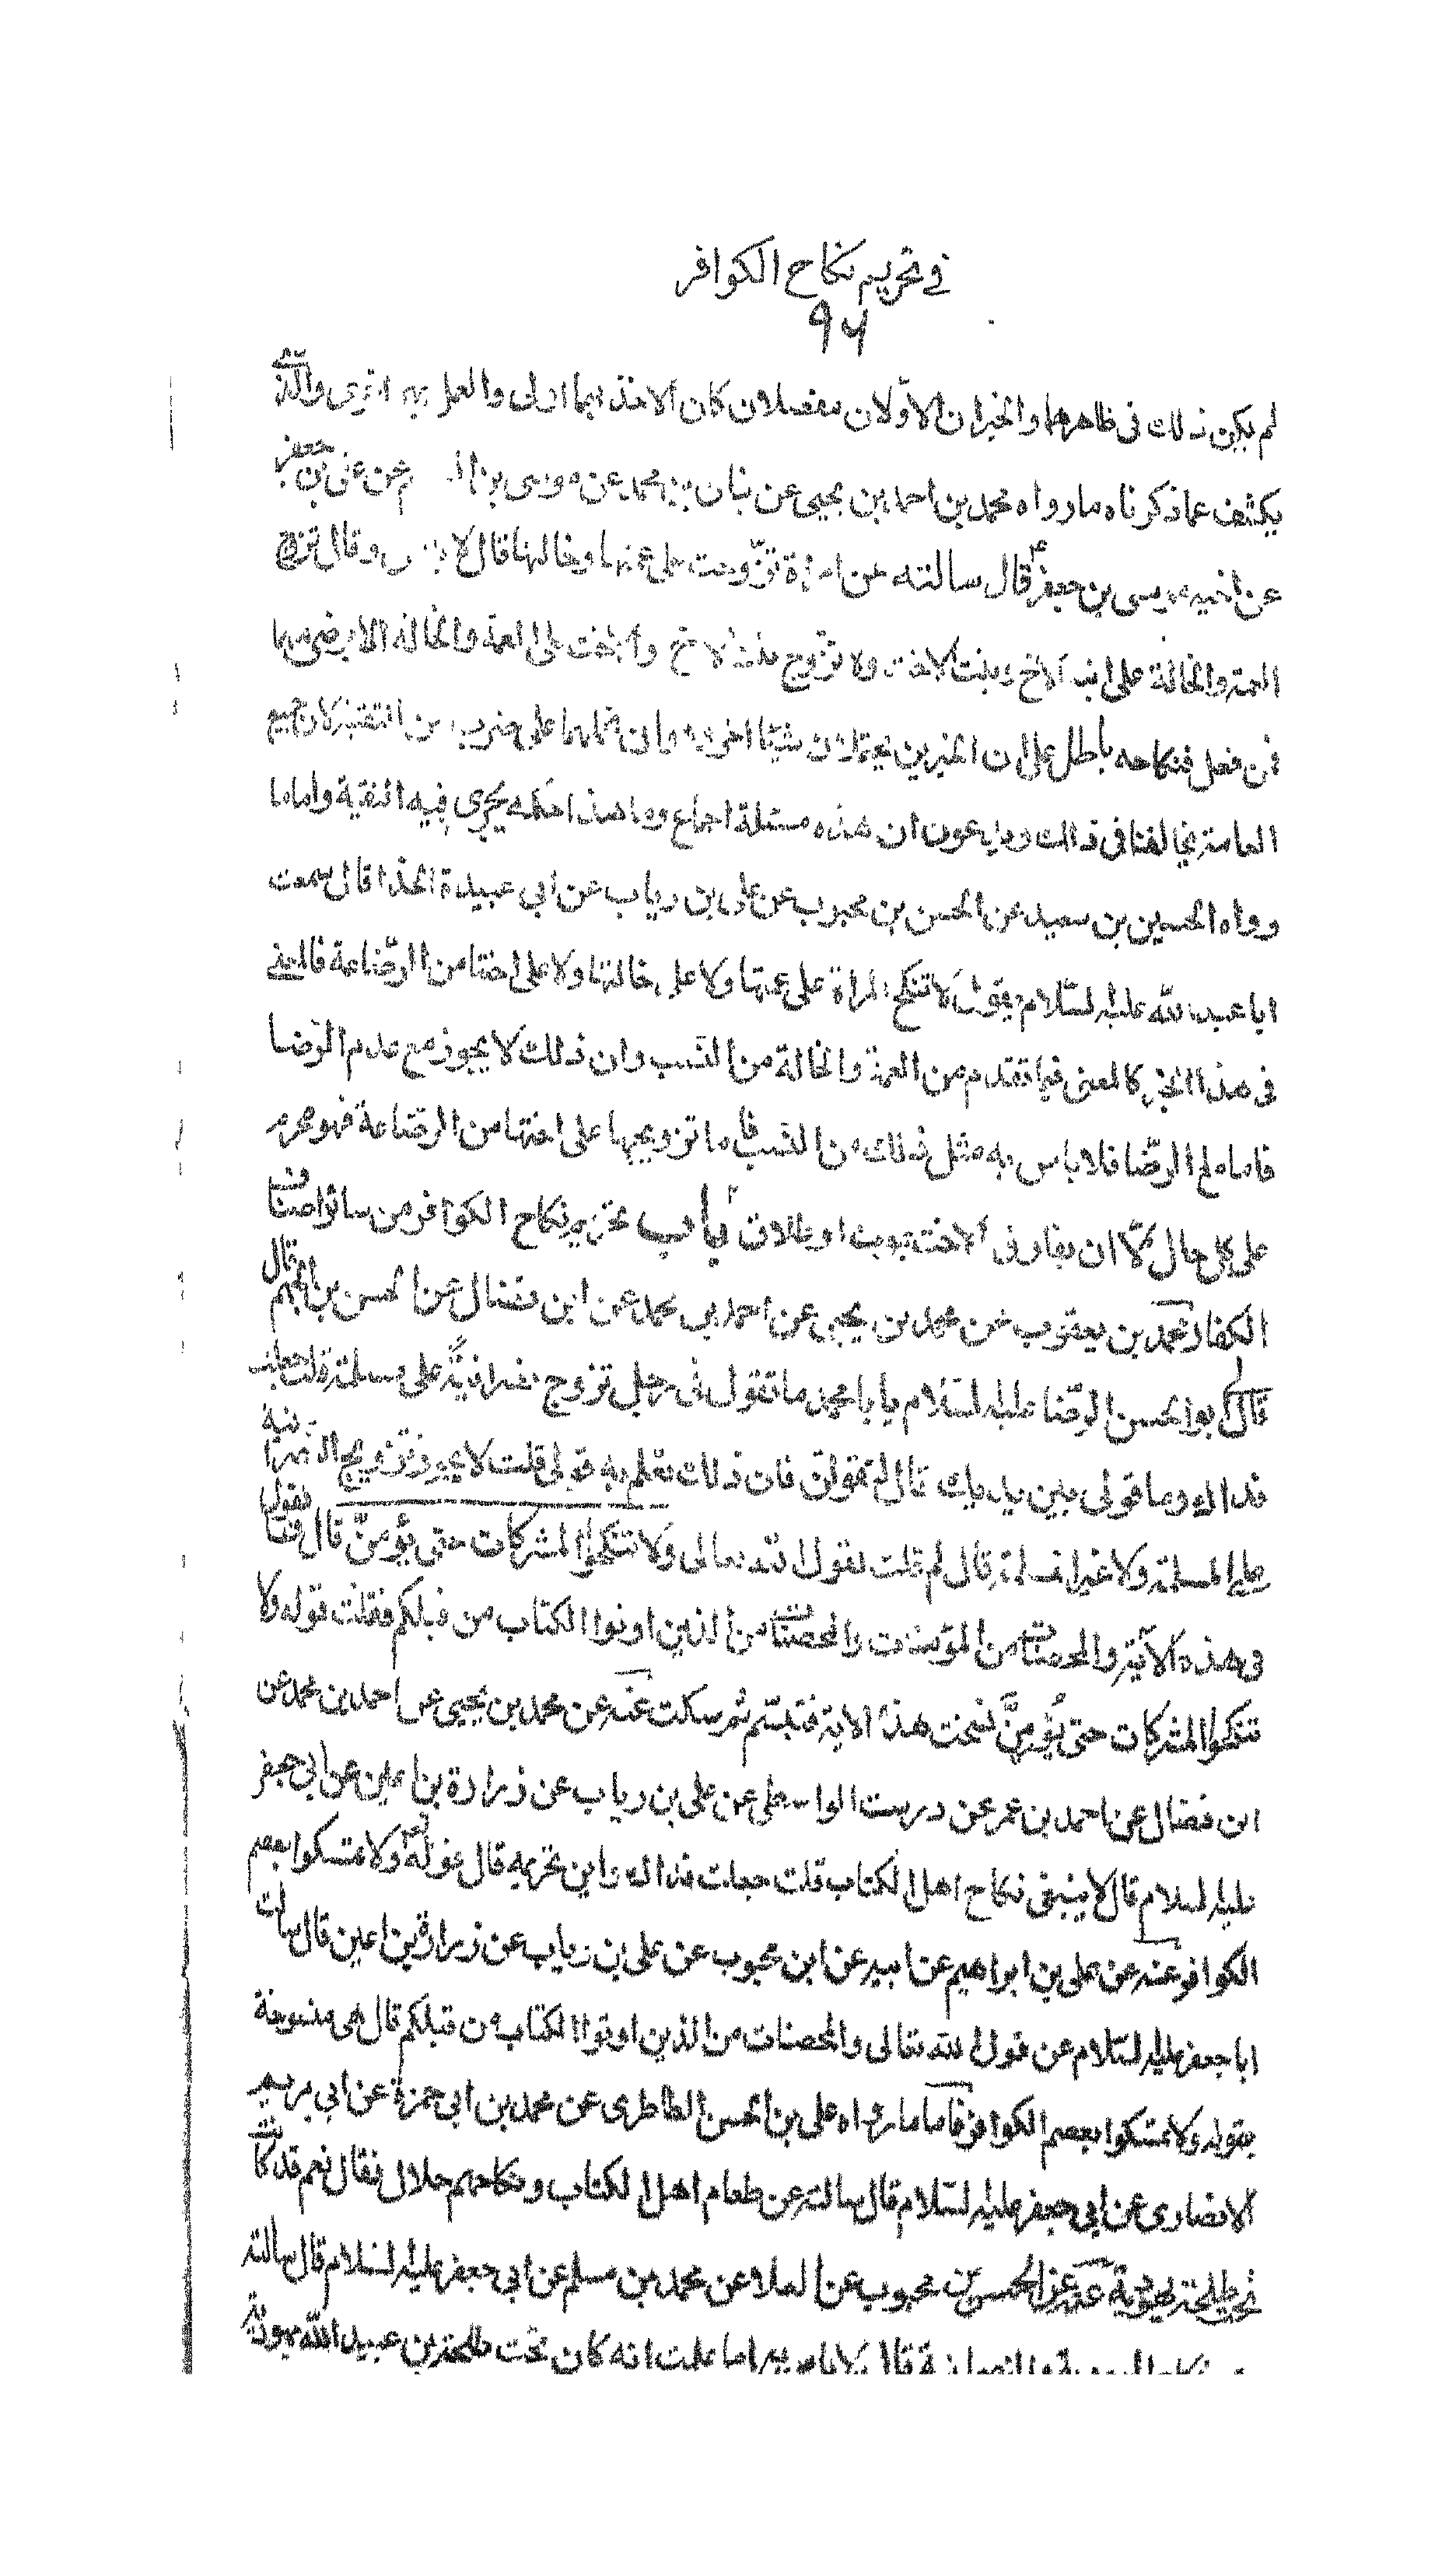 في تحريم نكاح الكوافر
٩٦
لم يكن ذلك في ظاهرهما والخبران الاولان مفصلان كان الاخذ بهما اولى والعمل بهما احرى والذي
يكشف عما ذكرناه ما رواه محمد بن احمد بن يحيى عن بنان بن محمد عن موسى بن القسم عن علي بن جعفر
عن اخيه موسى بن جعفر ع قال سالته عن امراة تزوجت على عمتها وخالتها قال لا باس وقال تزوج
العمة والخالة على ابنة الاخ وبنت الاخت ولا تزوج بنت الاخ والاخت على العمة والخالة الا برضى منهما
فمن فعل فنكاحه باطل على ان الخبرين يحتملان شيئا اخر وهو ان نحملهما على ضرب من التقية لان جميع
العامة يخالفنا في ذلك ويدعون ان هذه مسئلة اجماع وما هذا حكمه يجري فيه التقية واما ما
رواه الحسين بن سعيد عن الحسن بن محبوب عن علي بن رياب عن ابي عبيدة الحذا قال سمعت
ابا عبد الله عليه السلام يقول لا تنكح المراة على عمتها ولا على خالتها ولا على اختها من الرضاعة فالمعنى
في هذا الخبر كالمعنى فيما تقدم من العمة والخالة من النسب وان ذلك لا يجوز مع عدم الرضا
فاما مع الرضا فلا باس به مثل ذلك من النسب فاما تزويجها على اختها من الرضاعة فهو محرم
على كل حال الا ان يفارق الاخت بموت او طلاق باب تحريم نكاح الكوافر من سائر اصناف
الكفار محمد بن يعقوب عن محمد بن يحيى عن احمد بن محمد عن ابن فضال عن الحسن بن الجهم قال
قال لي ابو الحسن الرضا عليه السلام يا با محمد ما تقول في رجل تزوج نصرانية على مسلمة قلت جعلت
فداك وما قولي بين يديك قال لتقولن فان ذلك تعلم به قولي قلت لا يجوز تزويج النصرانية
على المسلمة ولا غير مسلمة قال لم قلت لقول الله تعالى ولا تنكحوا المشركات حتى يؤمن قال فما تقول
في هذه الآية والمحصنات من المؤمنات والمحصنات من الذين اوتوا الكتاب من قبلكم فقلت قوله ولا
تنكحوا المشركات حتى يؤمن نسخت هذه الاية فتبسم ثم سكت عنه عن محمد بن يحيى عن احمد بن محمد عن
ابن فضال عن احمد بن عمر عن درست الواسطي عن علي بن رياب عن زرارة بن اعين عن ابي جعفر
عليه السلام قال لا ينبغي نكاح اهل الكتاب قلت جعلت فداك واين تحريمه قال قوله تع ولا تمسكوا بعصم
الكوافر عنه عن علي بن ابراهيم عن ابيه عن ابن محبوب عن علي بن رياب عن زرارة بن اعين قال سالت
ابا جعفر عليه السلام عن قول الله تعالى والمحصنات من الذين اوتوا الكتاب من قبلكم قال هي منسوخة
بقوله ولا تمسكوا بعصم الكوافر فاما ما رواه علي بن الحسن الطاطري عن محمد بن ابي حمزة عن ابي مريم
الانصاري عن ابي جعفر عليه السلام قال سالته عن طعام اهل الكتاب ونكاحهم حلال فقال نعم قد كانت
تحت طلحة يهودية عنه عن الحسن بن محبوب عن العلا عن محمد بن مسلم عن ابي جعفر عليه السلام قال سالته
عن نكاح اليهودية والنصرانية قال لا باس به اما علمت انه كان تحت طلحة بن عبيد الله يهودية